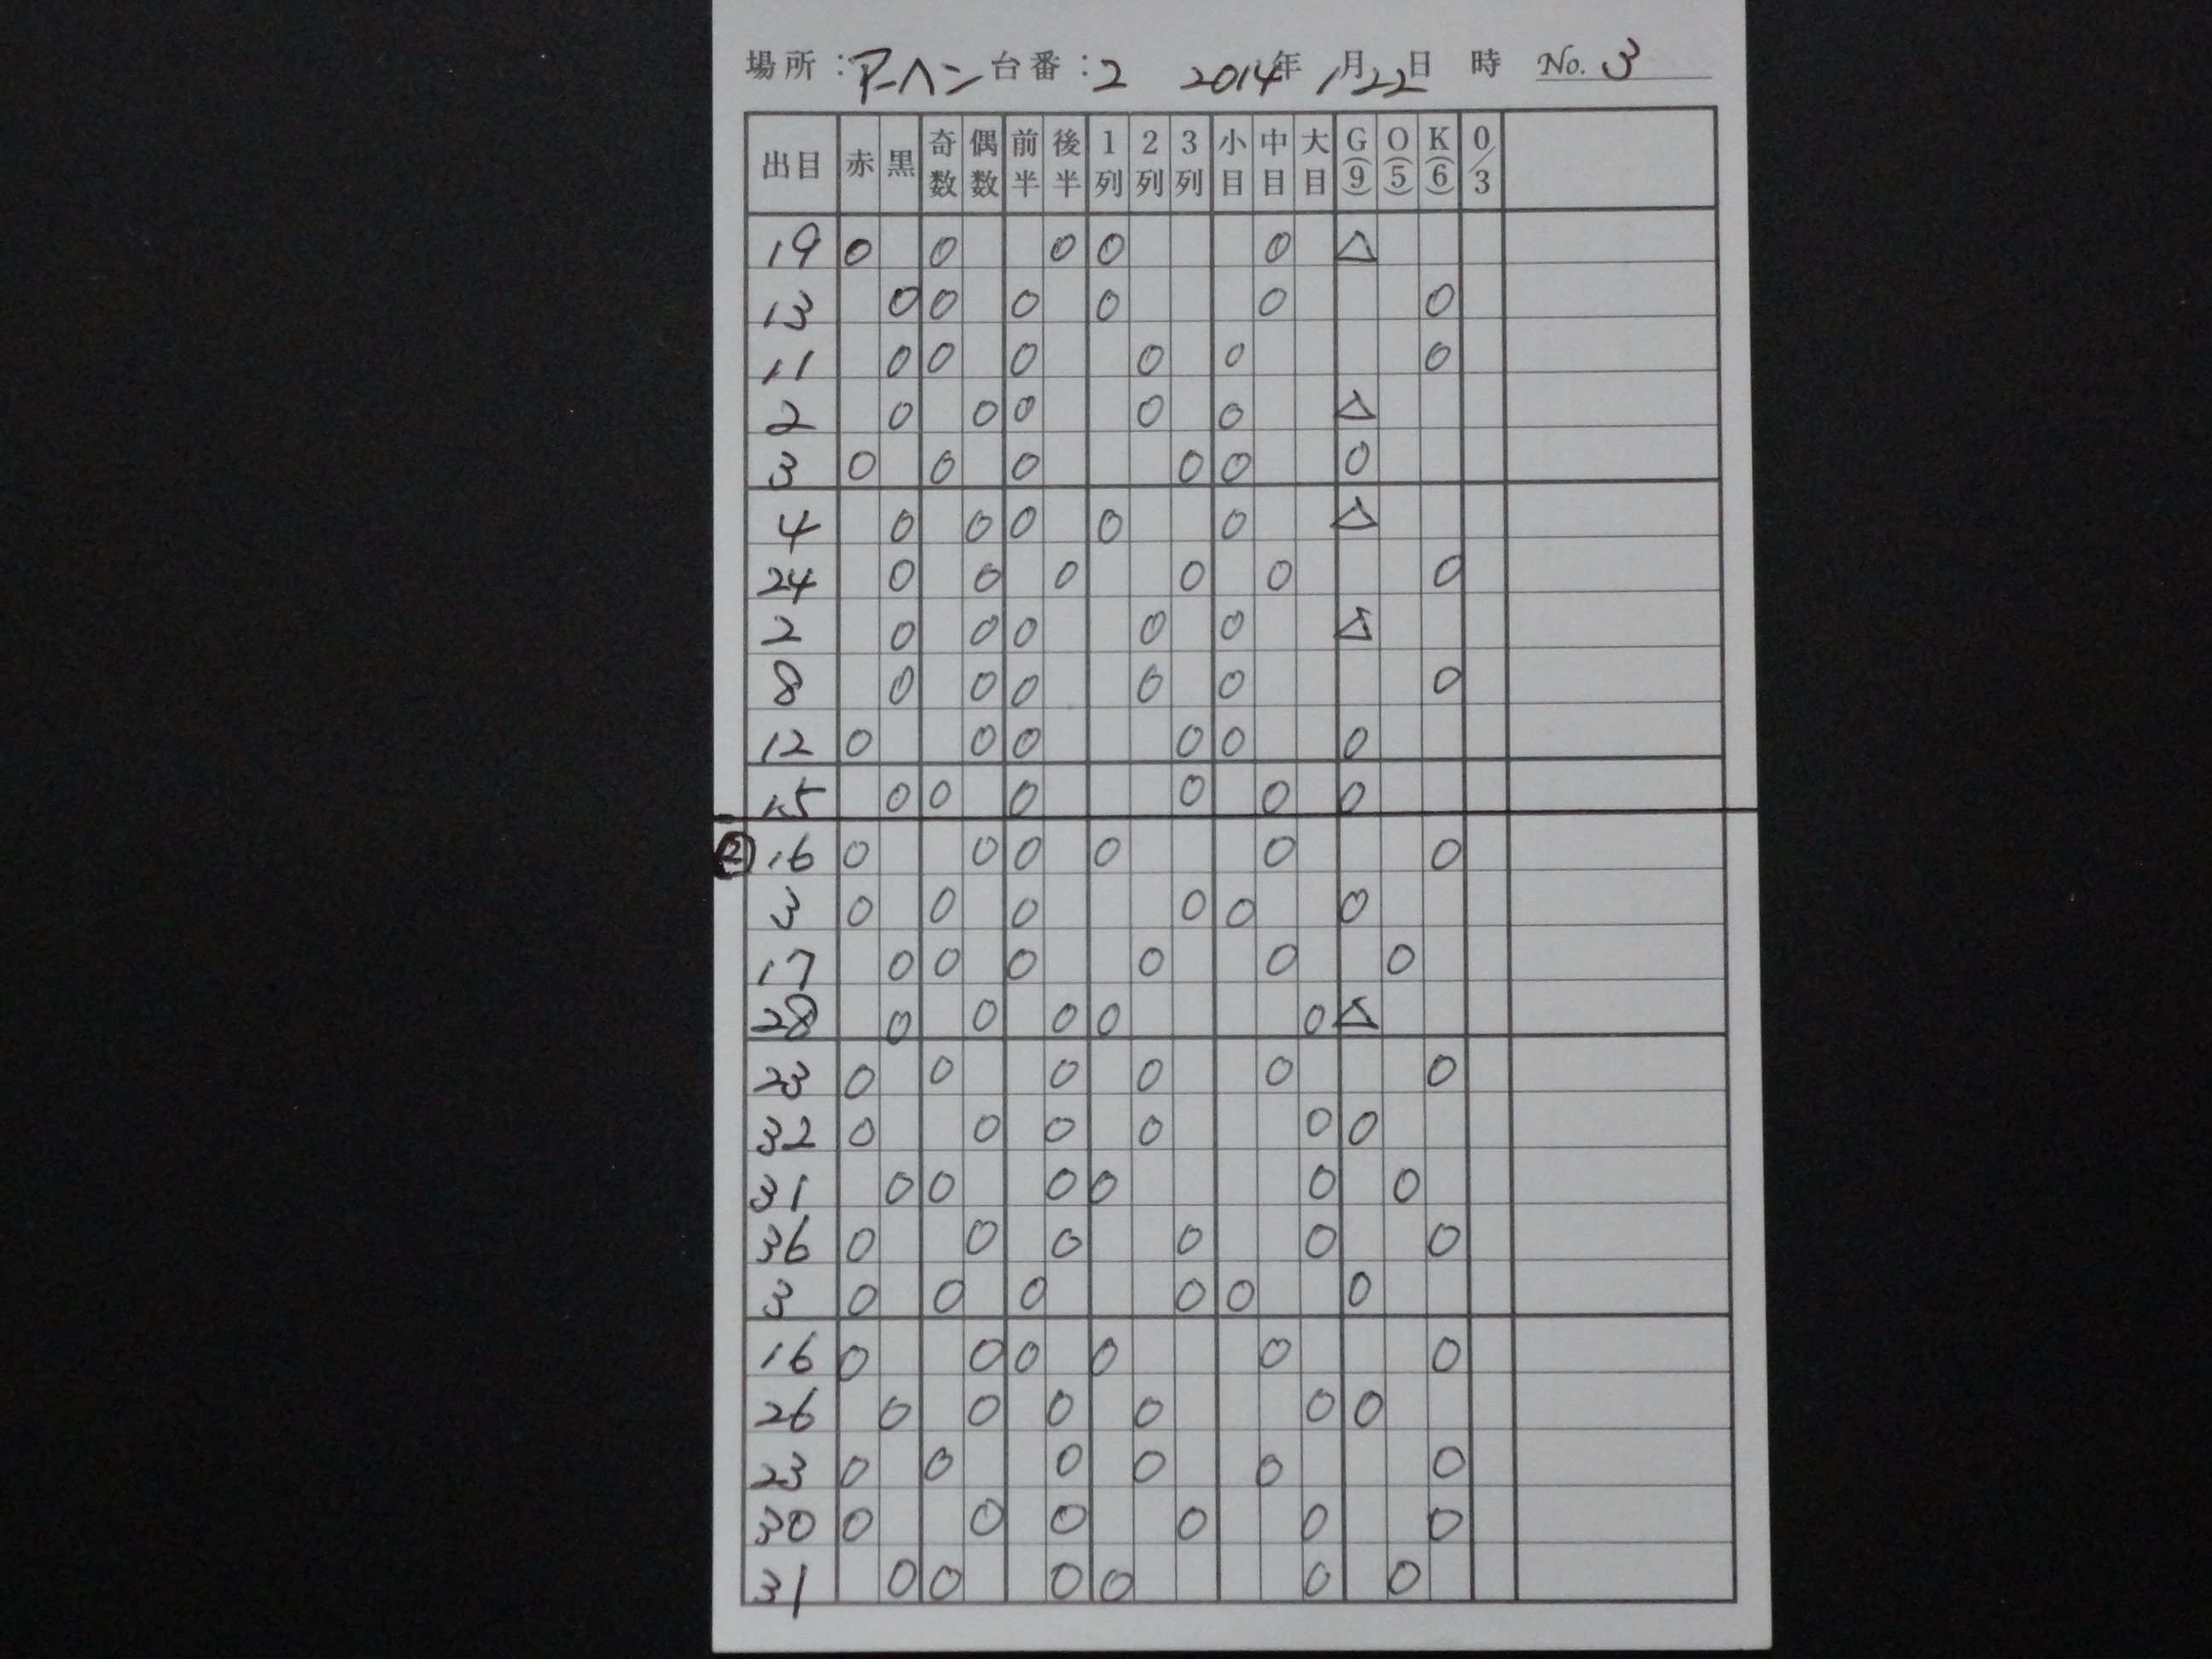 場所：アーヘン 台番：2 2014年 1月22日 時 No. 3
出目 赤 黒 奇数 偶数 前半 後半 1列 2列 3列 小目 中目 大目 G(9) O(5) K(6) 0/3
19 0 0 0 0 0 △
13 0 0 0 0 0 0
11 0 0 0 0 0 0
2 0 0 0 0 0 △
3 0 0 0 0 0 0
4 0 0 0 0 0 △
24 0 0 0 0 0 0
2 0 0 0 0 0 △
8 0 0 0 0 0 0
12 0 0 0 0 0 0
15 0 0 0 0 0 0
② 16 0 0 0 0 0 0
3 0 0 0 0 0 0
17 0 0 0 0 0 0
28 0 0 0 0 0 △
23 0 0 0 0 0 0
32 0 0 0 0 0 0
31 0 0 0 0 0 0
36 0 0 0 0 0 0
3 0 0 0 0 0 0
16 0 0 0 0 0 0
26 0 0 0 0 0 0
23 0 0 0 0 0 0
30 0 0 0 0 0 0
31 0 0 0 0 0 0